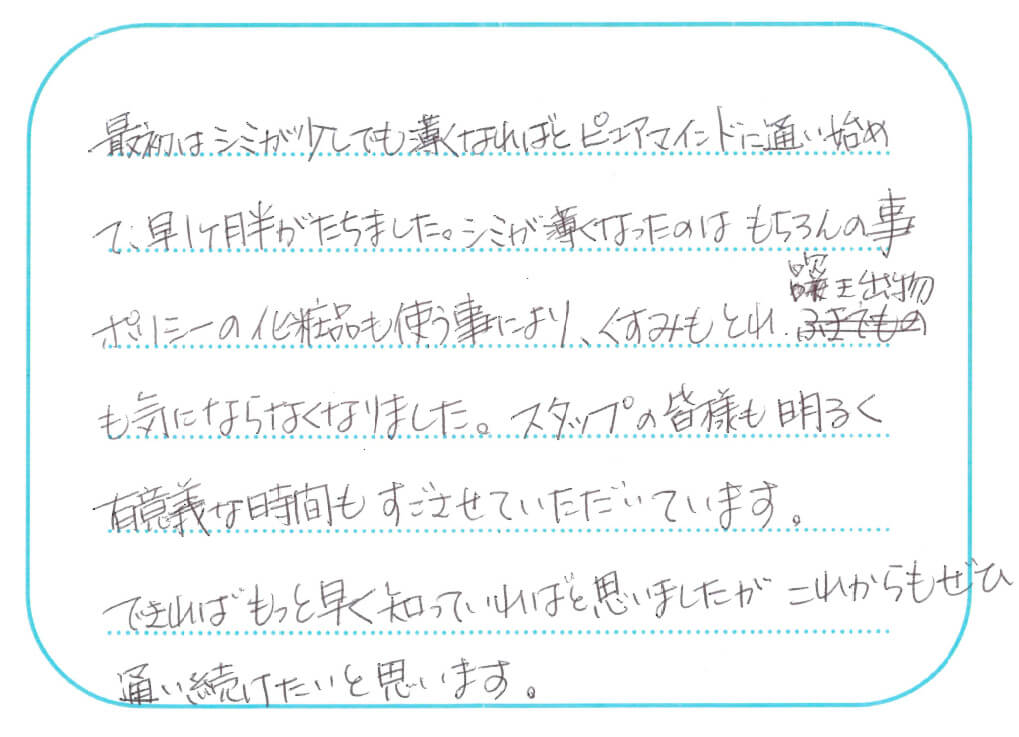 最初はシミが少しでも薄くなればとピュアマインドに通い始め
て、早1ヶ月半がたちました。シミが薄くなったのはもちろんの事
ポリシーの化粧品も使う事により、くすみもとれ、ふきでもの
吹き出物
も気にならなくなりました。スタップの皆様も明るく
有意義な時間もすごさせていただいています。
できればもっと早く知っていればと思いましたがこれからもぜひ
通い続けたいと思います。